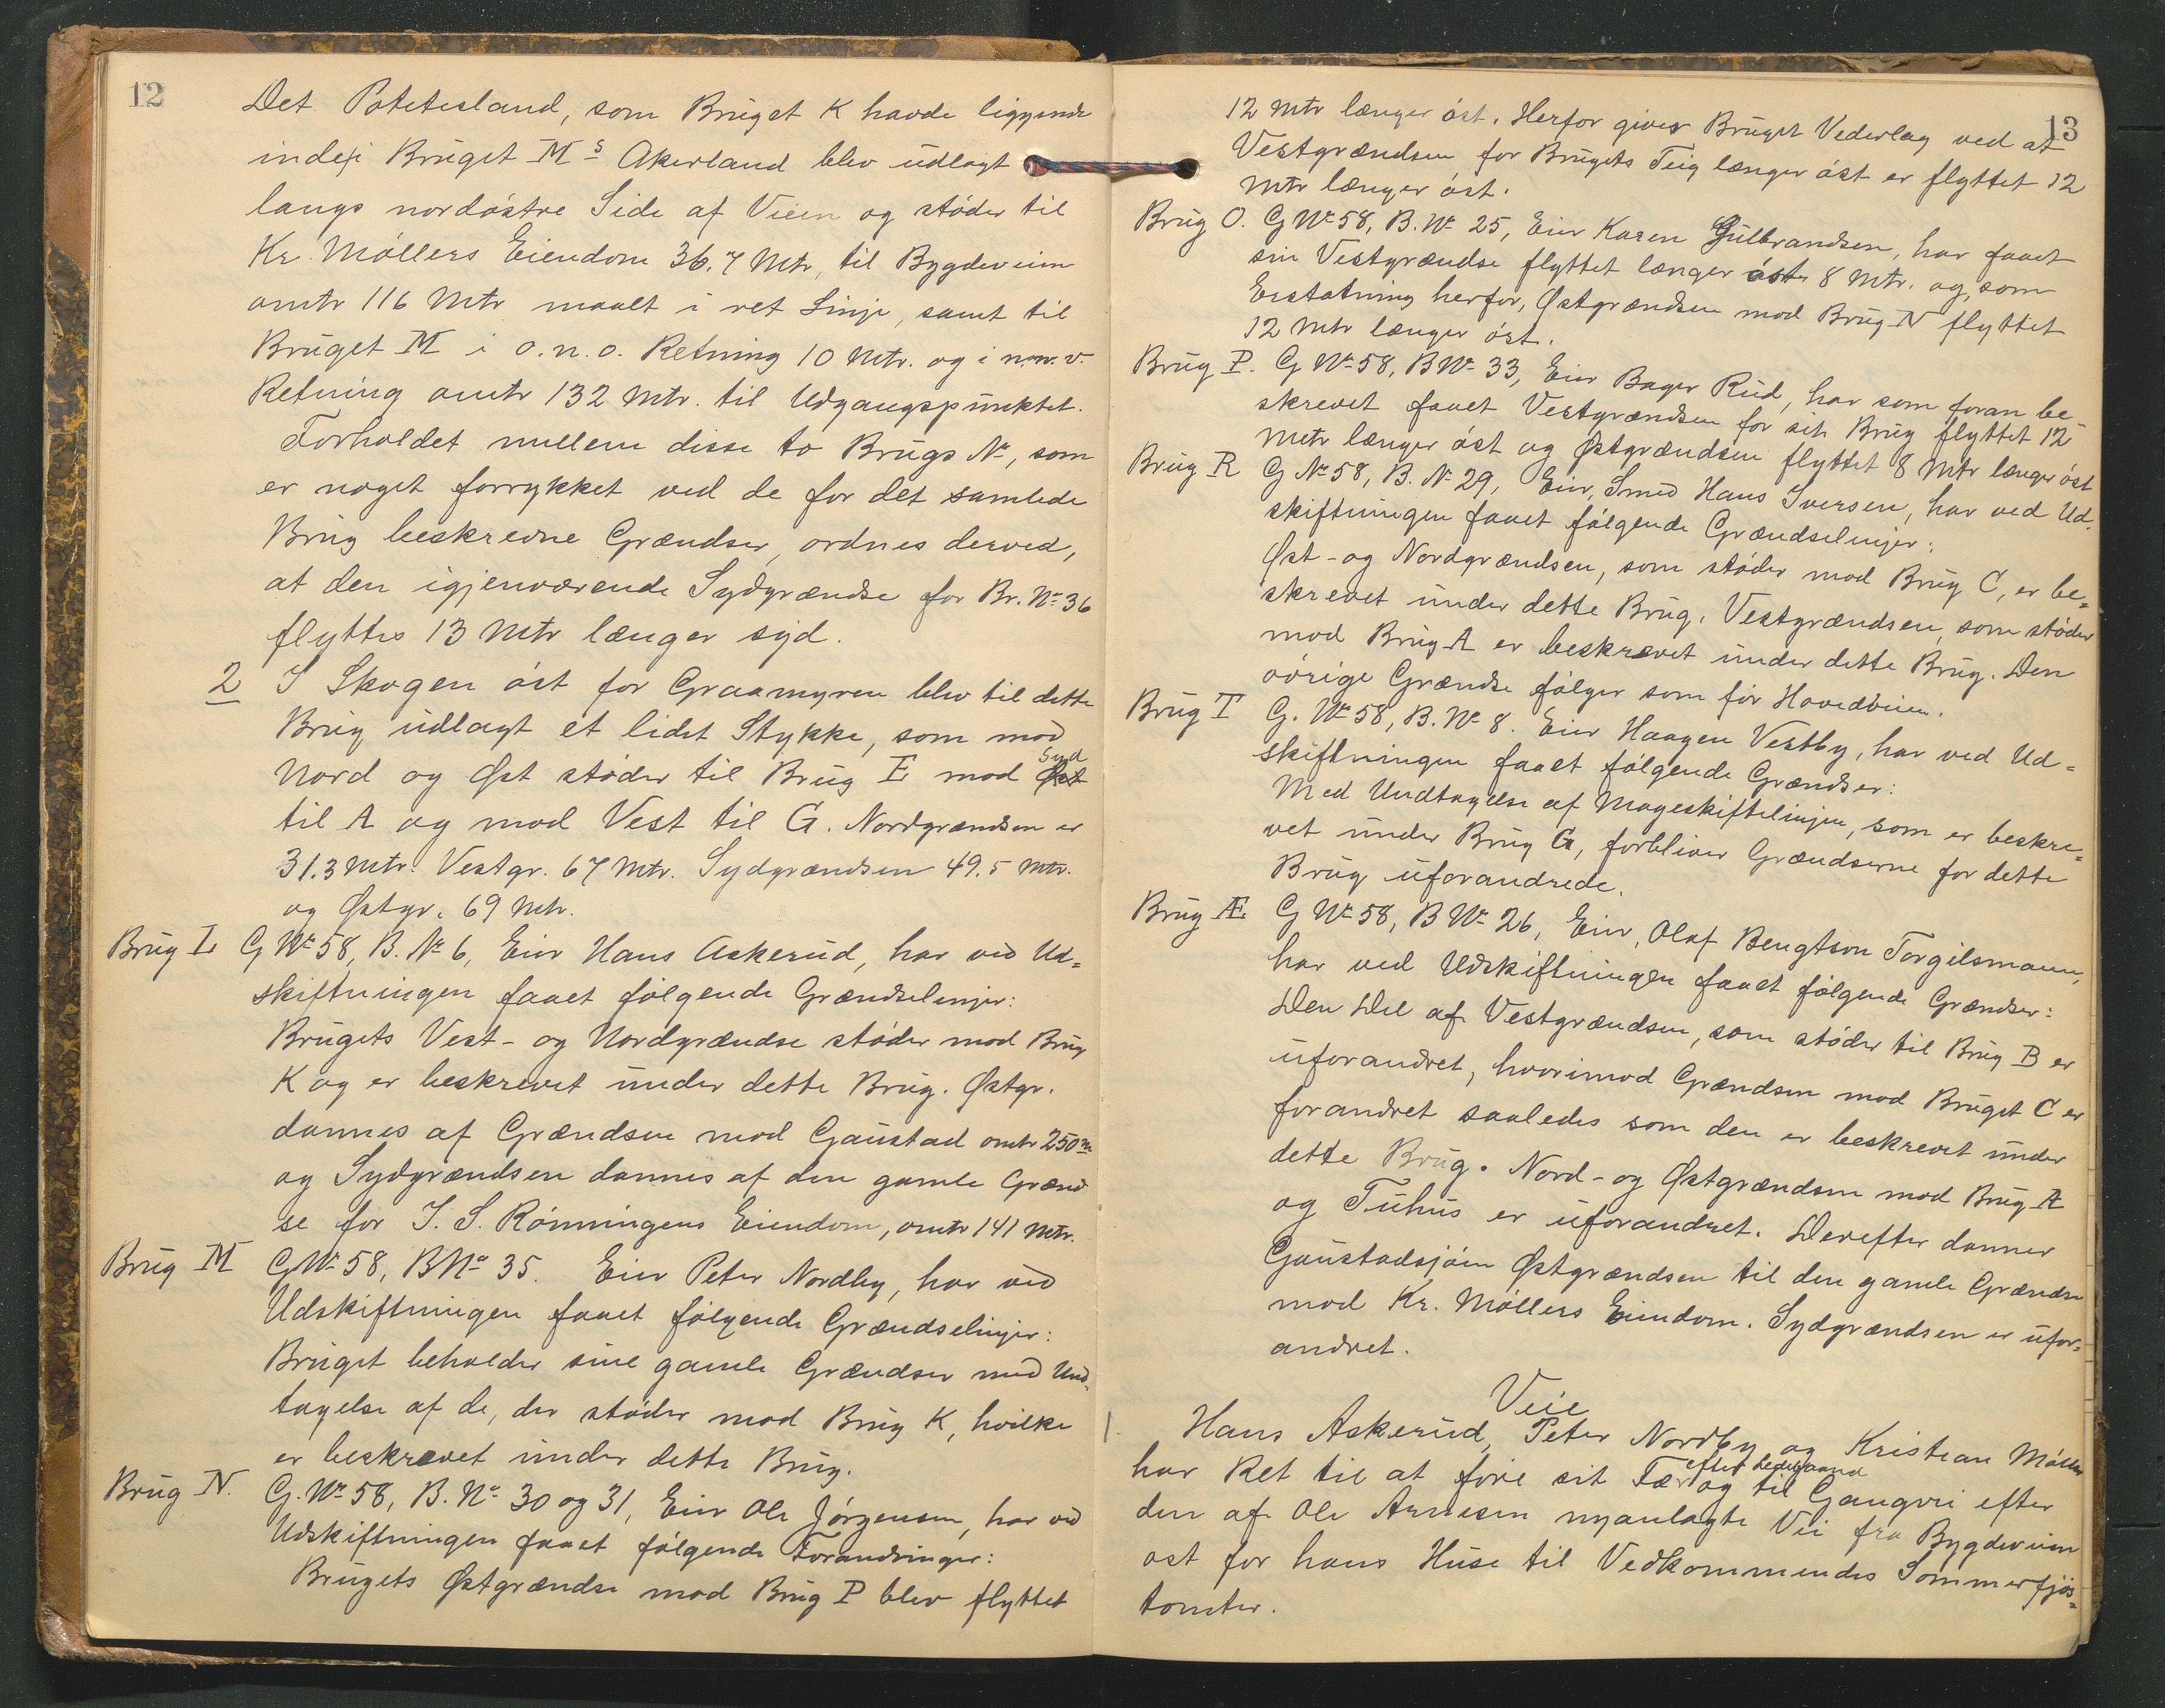 12
Det Potetesland, som Bruget K havde liggende
inde i Bruget Ms Akerland blev udlagt
langs nordöstre Side af Veien og stöder til
Kr. Möllers Eiendom 36.7 Mtr, til Bygdeveien
omtr 116 Mtr maalt i ret Linje, samt til
Bruget M i o.n.o. Retning 10 Mtr. og i n.n.v.
Retning omtr 132 Mtr. til Udgangspunktet.
Forholdet mellem disse to Brugs No, som
er noget forrykket ved de for det samlede
Brug beskrevne Grændser, ordnes derved,
at den igjenværende Sydgrændse for Br. No 36
flyttes 13 Mtr længer syd.
2 I Skogen öst for Graamyren blev til dette
Brug udlagt et lidet Stykke, som mod
Nord og Øst stöder til Brug E mod Øst Syd
til A og mod Vest til G. Nordgrændsen er
31.3 Mtr. Vestgr. 67 Mtr. Sydgrændsen 49.5 Mtr.
og Østgr. 69 Mtr.
Brug L G No 58, B. No 6, Eier Hans Askerud, har ved Ud=
skiftningen faaet fölgende Grændselinjer:
Brugets Vest- og Nordgrændse stöder mod Brug
K og er beskrevet under dette Brug. Østgr.
dannes af Grændsen mod Gaustad omtr 250 m
og Sydgrændsen dannes af den gamle Grænd
se for J. S. Rönningens Eiendom, omtr 141 Mtr.
Brug M G No 58, B No 35. Eier Peter Nordby, har ved
Udskiftningen faaet fölgende Grændselinjer:
Bruget beholder sine gamle Grændser med Und=
tagelse af de, der stöder mod Brug K, hvilke
er beskrevet under dette Brug.
Brug N. G. No 58, B. No 30 og 31, Eier Ole Jörgensen, har ved
Udskiftningen faaet fölgende Forandringer:
Brugets Østgrændse mod Brug P blev flyttet
13
12 Mtr længer öst. Herfor giver Bruget Vederlag ved at
Vestgrændsen for Brugets Teig længer öst er flyttet 12
Mtr længer öst.
Brug O. G No 58, B. No 25, Eier Karen Gulbrandsen, har faaet
sin Vestgrændse flyttet længer öst 8 Mtr. og, som
Erstatning herfor, Østgrændsen mod Brug N flyttet
12 Mtr længer öst.
Brug P. G No 58, B No 33, Eier Bager Rud, har som foran be
skrevet faaet Vestgrændsen for sit Brug flyttet 12
Metr længer öst og Østgrændsen flyttet 8 Mtr længer öst
Brug R G No 58, B. No 29, Eier, Smed Hans Iversen, har ved Ud=
skiftningen faaet fölgende Grændselinjer:
Øst- og Nordgrændsen, som stöder mod Brug C, er be=
skrevet under dette Brug. Vestgrændsen, som stöder
mod Brug A er beskrevet under dette Brug. Den
övrige Grændse fölger som för Hovedveien.
Brug T G. No 58, B. No 8. Eier Haagen Vestby, har ved Ud=
skiftningen faaet fölgende Grændser:
Med Undtagelse af Mageskiftelinjen, som er beskre=
vet under Brug G, forbliver Grændserne for dette
Brug uforandrede.
Brug Æ G No 58, B No 26, Eier, Olaf Bengtson Torgilsmoen,
har ved Udskiftningen faaet fölgende Grændser:
Den Del af Vestgrændsen, som stöder til Brug B er
uforandret, hvorimod Grændsen mod Bruget C er
forandret saaledes som den er beskrevet under
dette Brug. Nord- og Østgrændsen mod Brug A
og Tuhus er uforandret. Derefter danner
Gaustadsjöen Østgrændsen til den gamle Grændse
mod Kr. Möllers Eiendom. Sydgrændsen er ufor=
andret.
Veie
1. Hans Askerud, Peter Nordby og Kristian Möller
har Ret til at före sit Fæ efter Ledebaand og til Gangvei efter
den af Ole Arnesen nyanlagte Vei fra Bygdeveien
ost for hans Huse til Vedkommendes Sommerfjös=
tomter.